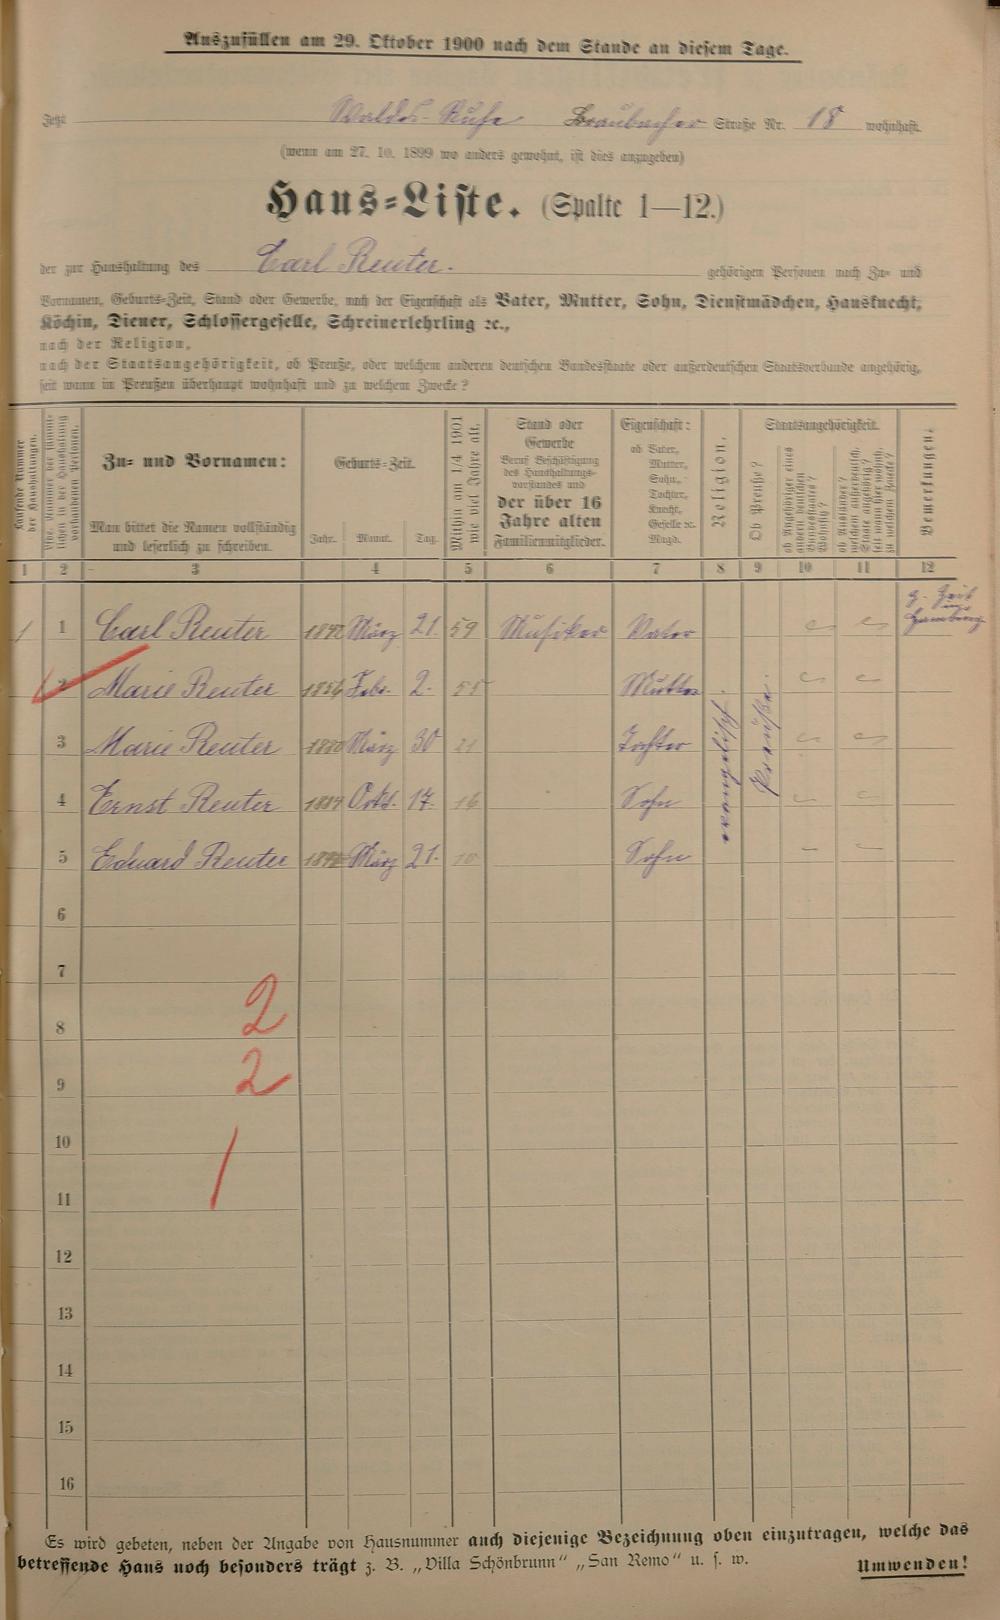 Auszufüllen am 29. Oktober 1900 nach dem Stande an diesem Tage.
Jetzt Waldes-Ruhe Braubacher Straße Nr. 18 wohnhaft.
(wenn am 27. 10. 1899 wo anders gewohnt, ist dies anzugeben)
Haus=Liste. (Spalte 1—12.)
der zur Haushaltung des Carl Reuter. gehörigen Personen nach Zu- und
Vornamen, Geburts-Zeit, Stand oder Gewerbe, nach der Eigenschaft als Vater, Mutter, Sohn, Dienstmädchen, Hausknecht,
Köchin, Diener, Schlossergeselle, Schreinerlehrling ꝛc.,
nach der Religion,
nach der Staatsangehörigkeit, ob Preuße, oder welchem anderen deutschen Bundesstaate oder außerdeutschen Staatsverbande angehörig,
seit wann in Preußen überhaupt wohnhaft und zu welchem Zwecke?
Laufende Nummer
der Haushaltungen.
lichen in der Haushaltung
vorhandenen Personen.
Zu- und Vornamen:
Man bittet die Namen vollständig
und leserlich zu schreiben.
Geburts-Zeit.
Jahr. Monat. Tag.
Mithin am 1/4 1901
wie viel Jahre alt.
Stand oder
Gewerbe
Beruf Beschäftigung
des Haushaltungs-
vorstandes und
der über 16
Jahre alten
Familienmitglieder.
Eigenschaft:
ob Vater,
Mutter,
Sohn,
Tochter,
Knecht,
Geselle ꝛc.
Magd.
Religion.
Staatsangehörigkeit.
Ob Preuße?
ob Angehöriger eines
anderen deutschen
Bundesstaates?
ob Ausländer?
welchem außerdeutsch.
Staate angehörig?
seit wann hier wohnh.
zu welchem Zwecke?
Bemerkungen.
1 2 3 4 5 6 7 8 9 10 11 12
z. Zeit
Hamburg
1 1 Carl Reuter 1842 März 21. 59 Musiker Vater
2 Marie Reuter Febr. 2. 55 Mutter
3 Marie Reuter 1880 März 30 21 Tochter
4 Ernst Reuter 1884 Okt. 17. 16 Sohn
5 Eduard Reuter März 21. 10 Sohn
evangelisch.
Preuße.
6
7
2
8
2
9
10
1
11
12
13
14
15
16
Es wird gebeten, neben der Angabe von Hausnummer auch diejenige Bezeichnung oben einzutragen, welche das
betreffende Haus noch besonders trägt z. B. „Villa Schönbrunn“ „San Remo“ u. s. w.
Umwenden!